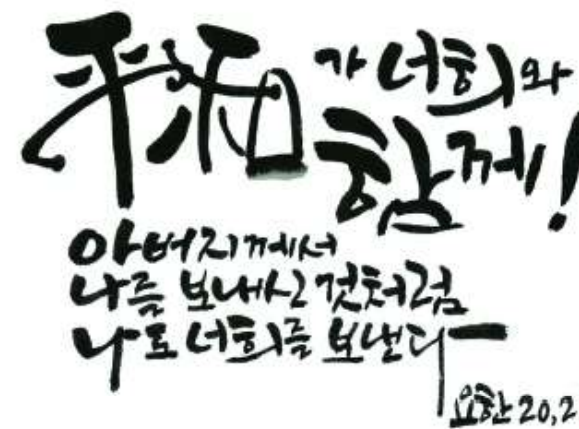 平和가 너희와
함께!
아버지께서
나를 보내신 것처럼
나도 너희를 보낸다
요한 20,2